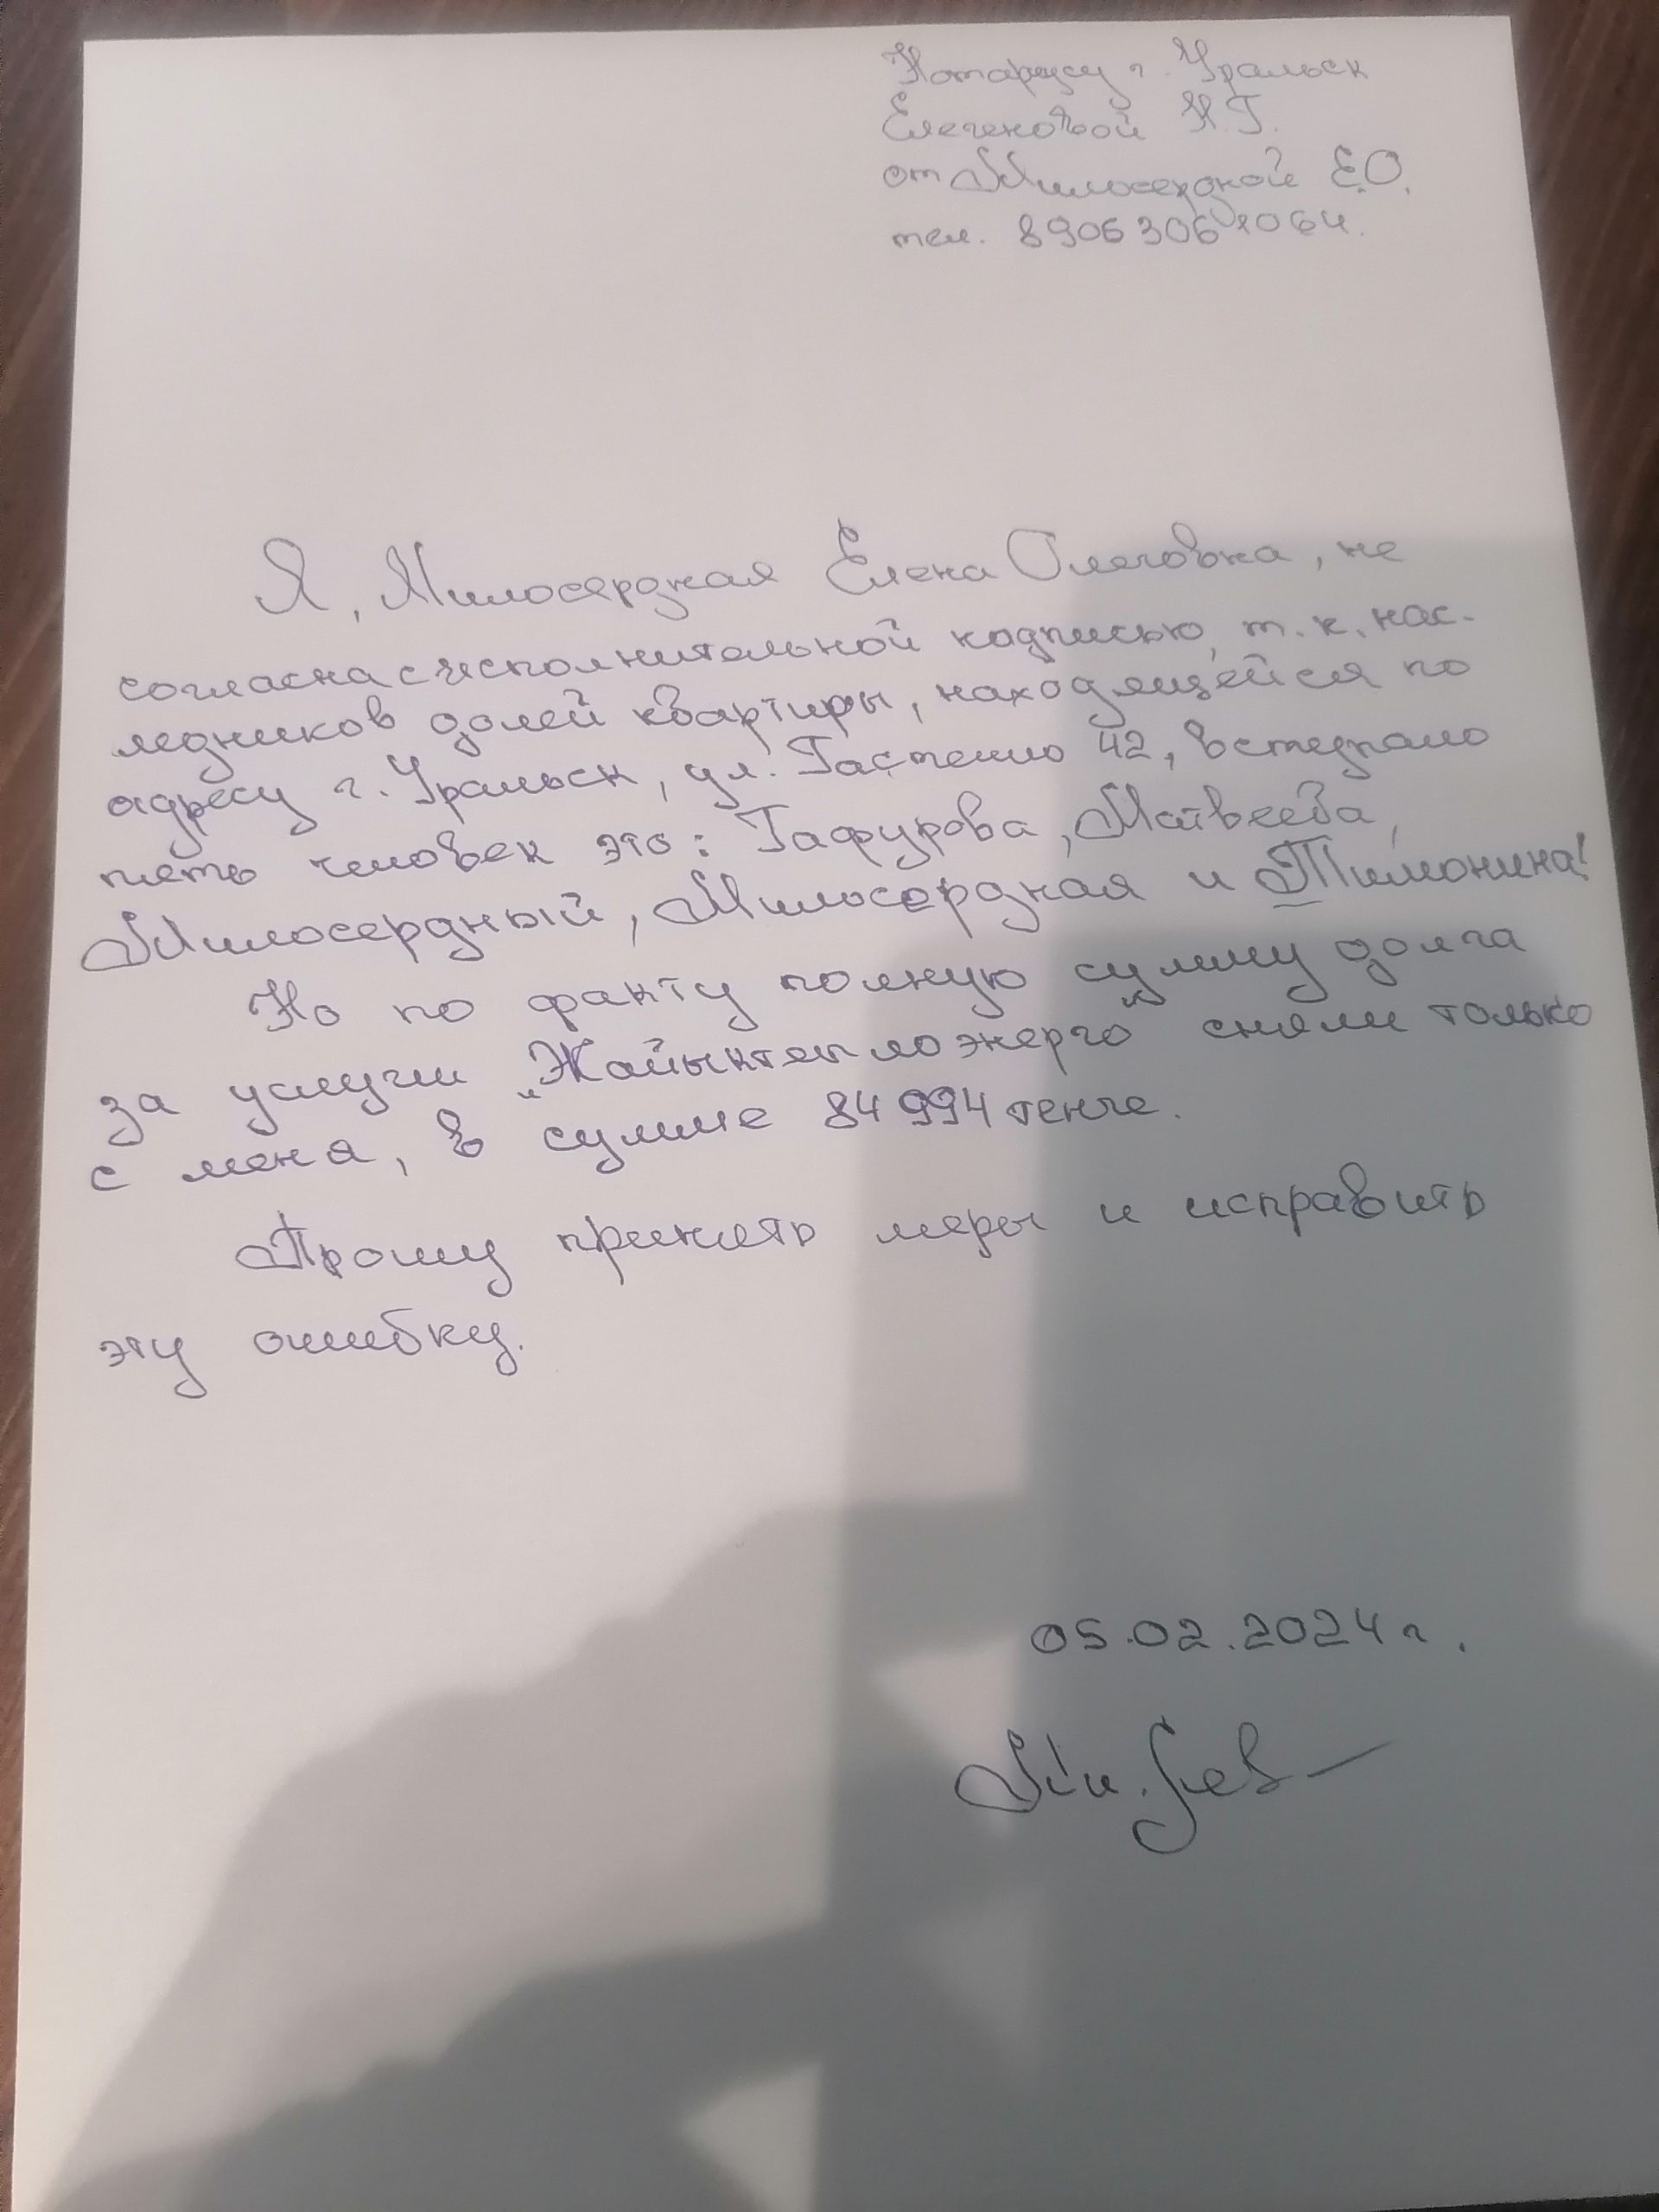 Нотариусу г. Уральск
Елегеновой Н.Г.
от Милосердной Е.О.
тел.
Я, Милосердная Елена Олеговна, не
согласна с исполнительной надписью, т.к. нас-
ледников долей квартиры, находящейся по
адресу г. Уральск, ул. Гастелло 42, вступало
пять человек это: Гафурова, Матвеева,
Милосердный, Милосердная и Тимонина!
Но по факту полную сумму долга
за услуги „Жайыктеплоэнерго" сняли только
с меня, в сумме 84 994 тенге.
Прошу принять меры и исправить
эту ошибку.
05.02.2024 г.